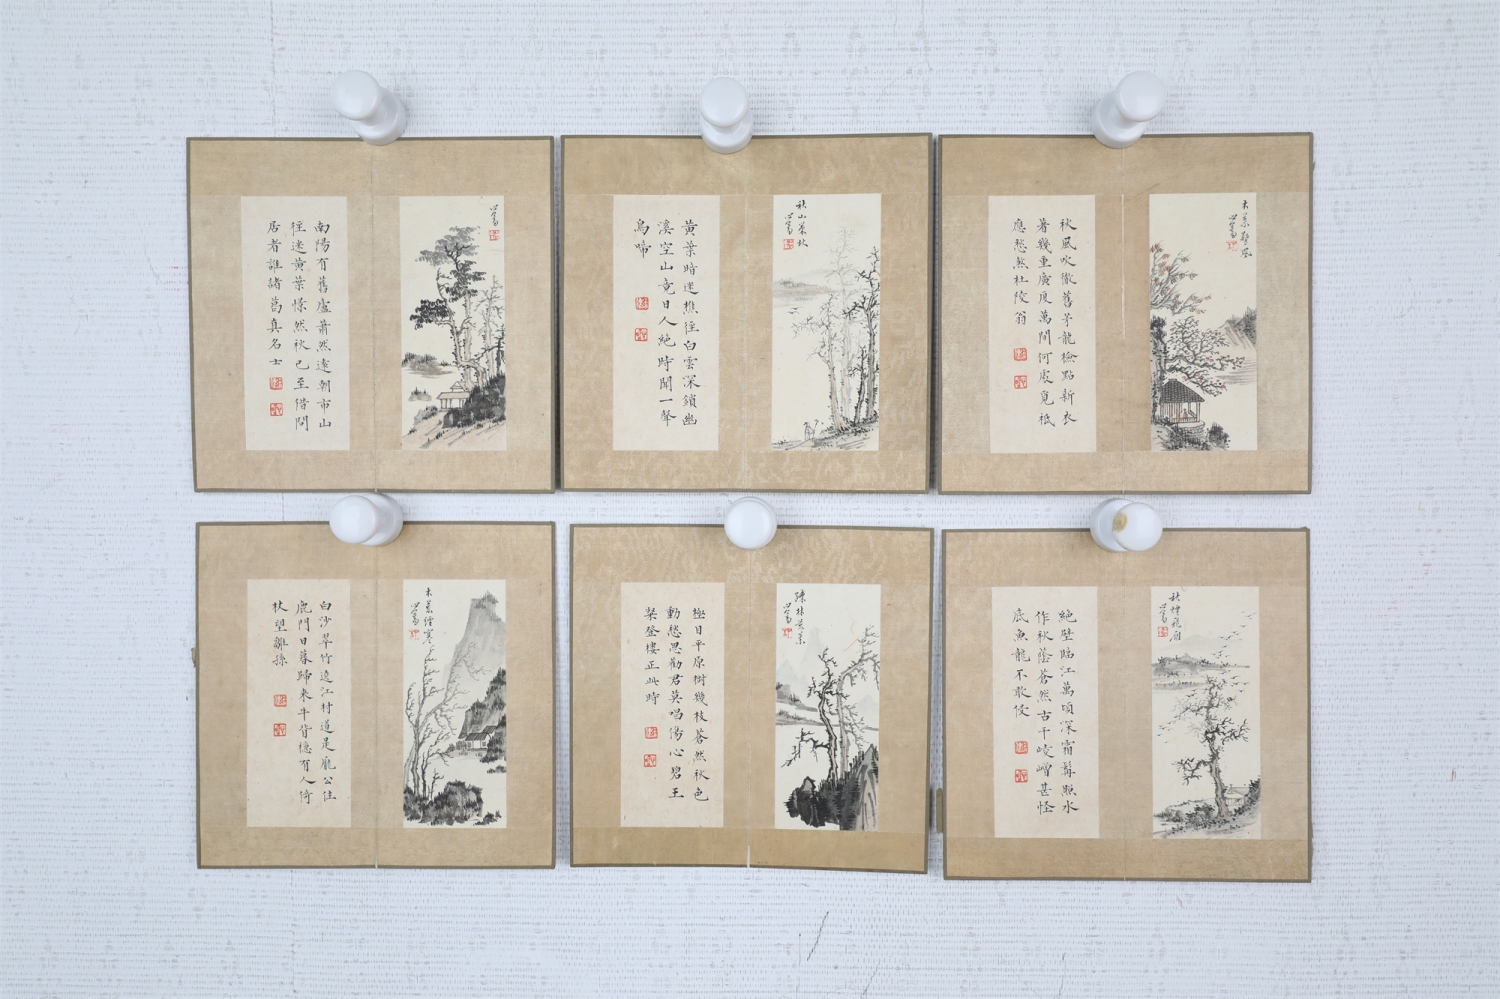 南陽有舊廬蕭然遠朝市山
徑迷黃葉條然秋已至借問
居者誰諸葛真名士
溥
黃葉時迷樵徑白雲深鎖幽
溪空山竟日人絕時聞一聲
烏啼
秋山葉
秋風吹徹舊茅龍檢點新衣
著幾重廣廈萬間何處覓祇
應愁煞杜陵翁
木葉 風
白沙翠竹遶江村道是龐公住
鹿門日暮歸來牛背穩有人倚
杖望離孫
木葉 寒
極目平原樹幾枝蒼然秋色
動愁思勸君莫唱傷心碧王
粲登樓正此時
疎林黃葉
絕壁臨江萬頃深霜髯照水
作秋蔭蒼然古干崚嶒甚怪
底魚龍不敢侵
秋